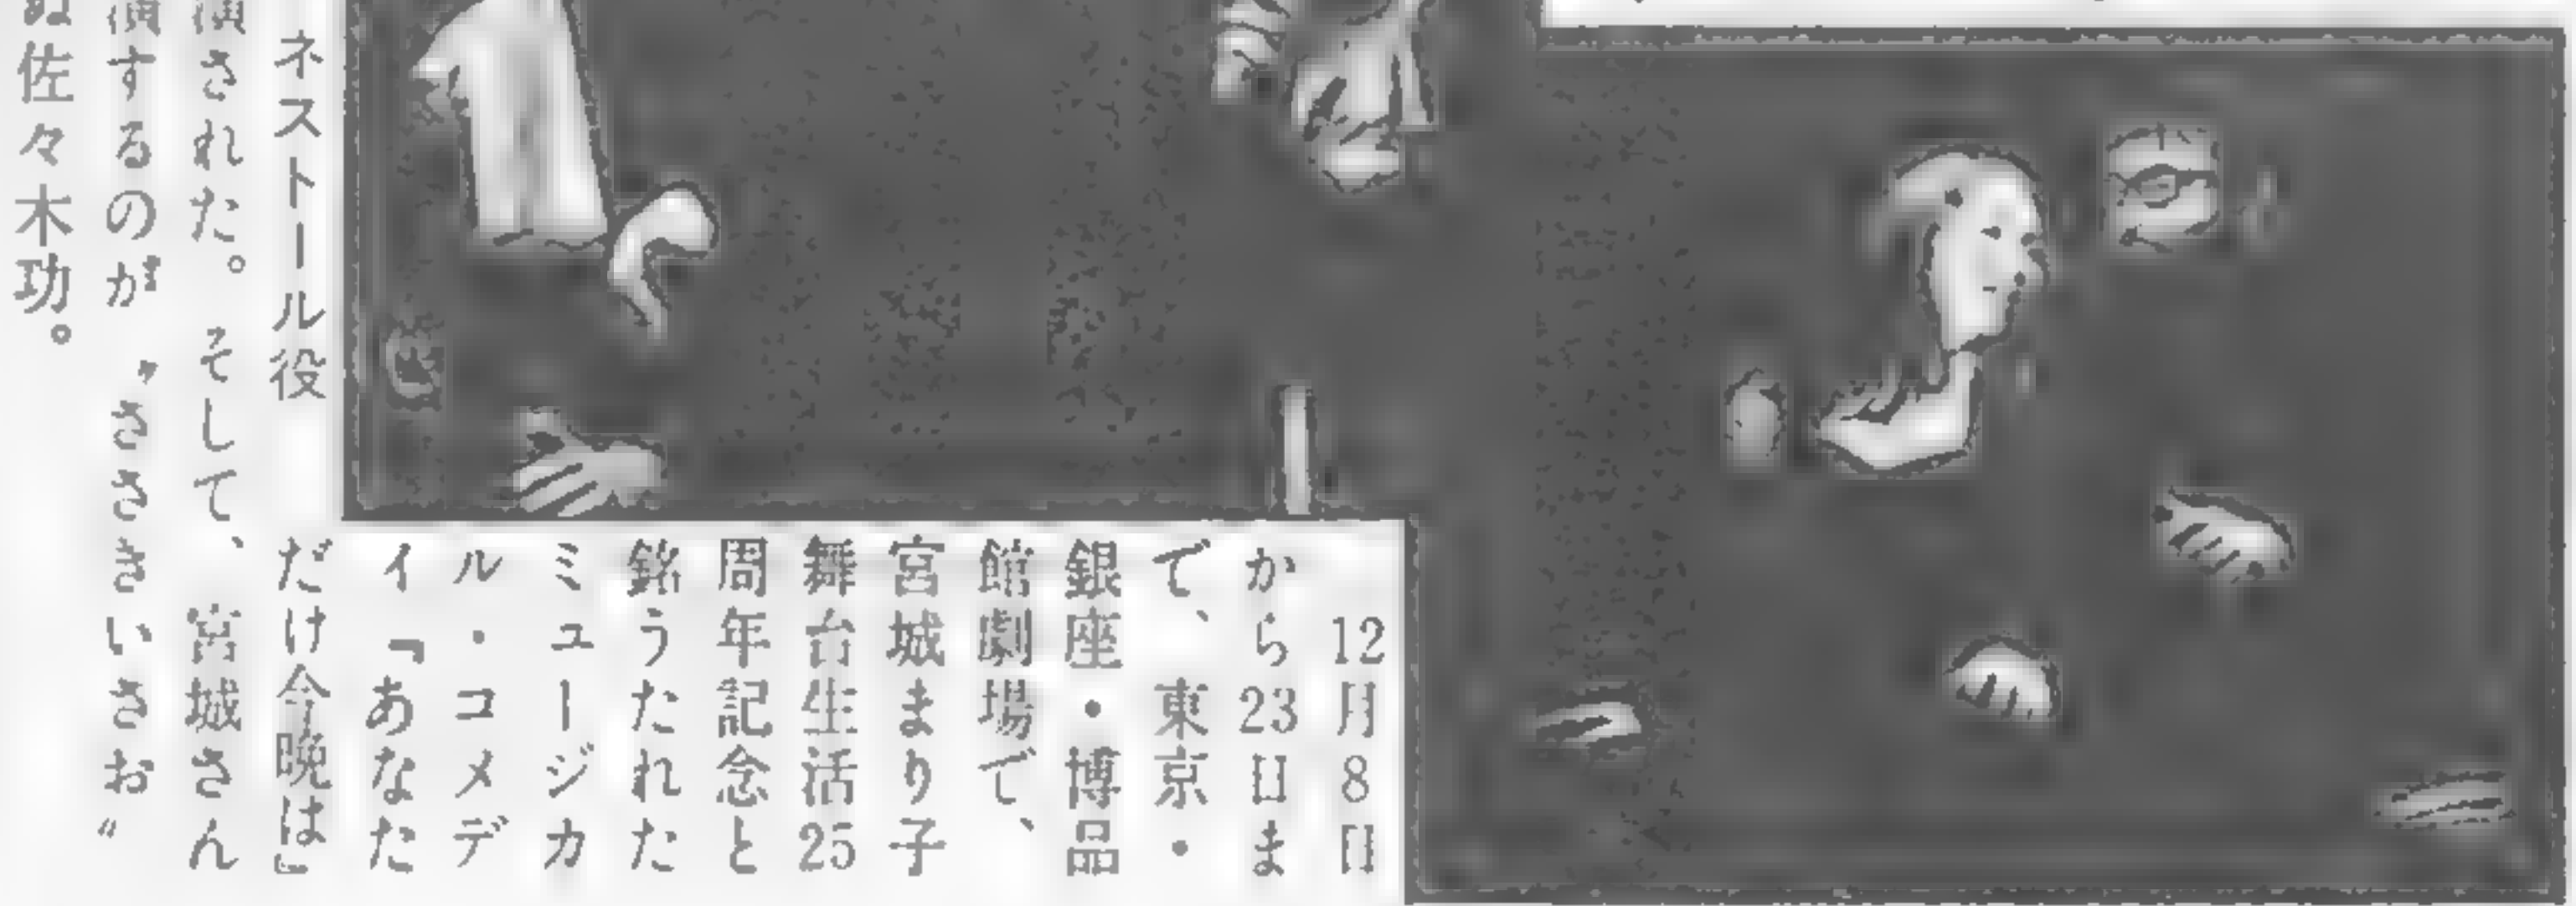 12月8日
から23日ま
で、東京・
銀座・博品
館劇場で、
宮城まり子
舞台生活25
周年記念と
銘うたれた
ミュージカ
ル・コメデ
イ『あなた
だけ今晩は』
ネストール役
演された。そして、宮城さん
演するのが〝ささきいさお〟
佐々木功。